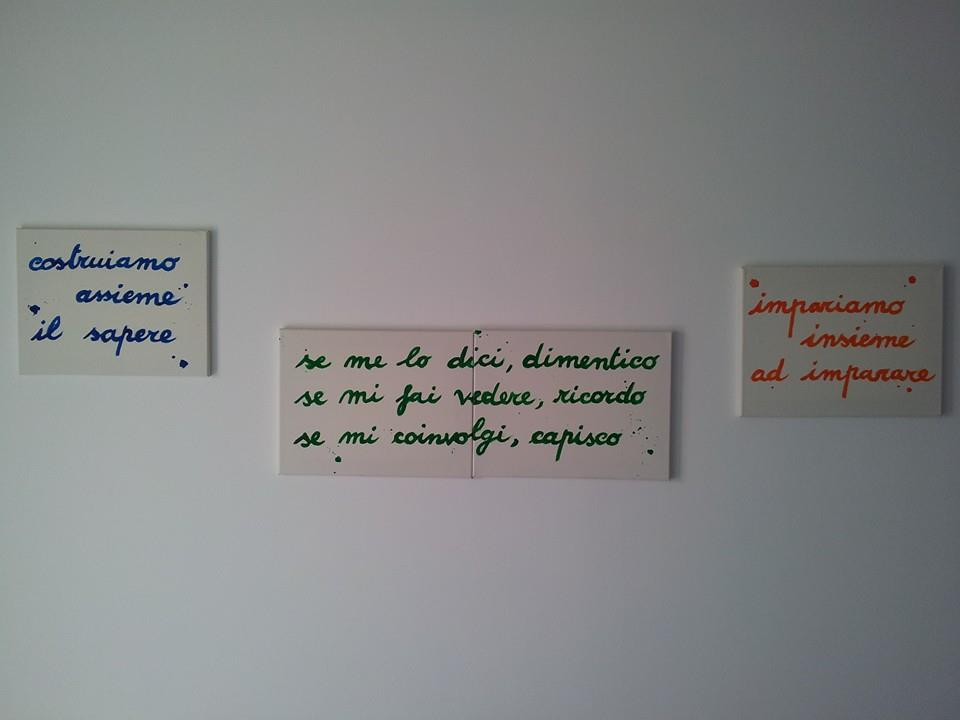 costruiamo
assieme
il sapere
se me lo dici, dimentico
se mi fai vedere, ricordo
se mi coinvolgi, capisco
impariamo
insieme
ad imparare